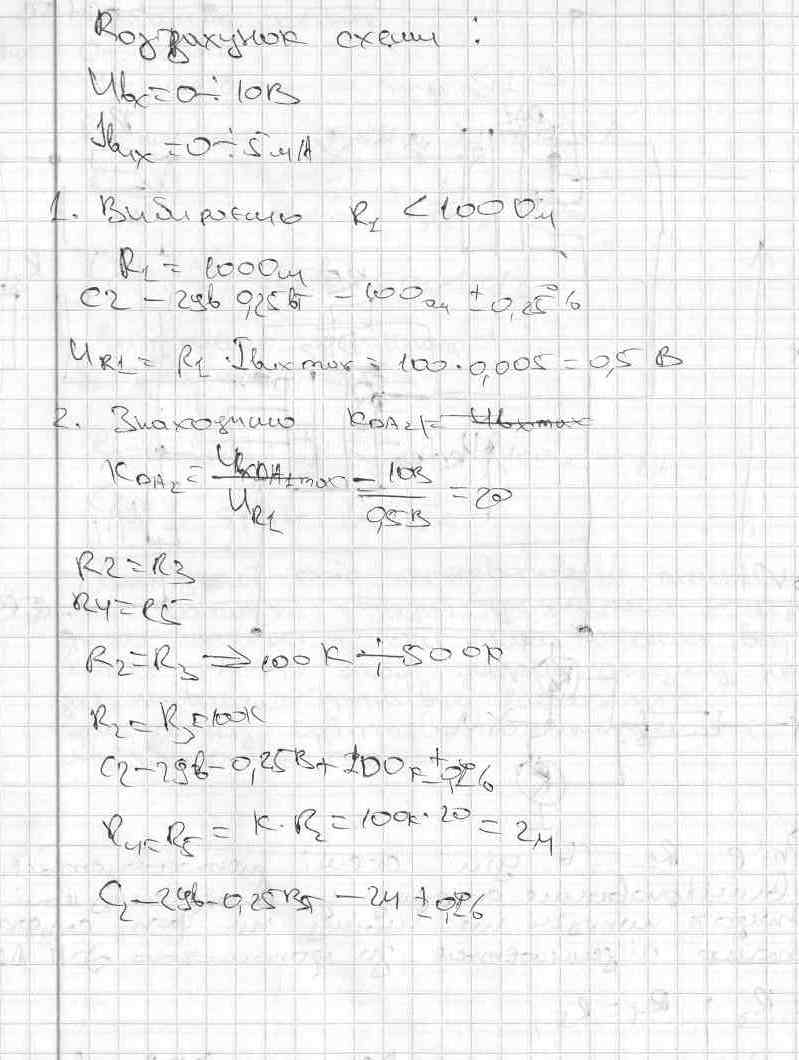 Розрахунок схеми :
Uвх = 0 ÷ 10В
Iвих = 0 ÷ 5 мА
1. Вибираємо R1 < 100 Ом
R1 = 100 Ом
С2 – 29в 0,25вт – 100 ом ± 0,25 %
UR1 = R1 · Iвих max = 100 · 0,005 = 0,5 В
2. Знаходимо KDA2 =
KDA2 = UвхDA1max / UR1 = 10В / 0,5В = 20
R2 = R3
R4 = R5
R2 = R3 => 100К ÷ 500К
R2 = R3 = 100К
С2 – 29в – 0,25Вт 100к ±
R4 = R5 = К · R2 = 100к · 20 = 2М
С2 – 29в – 0,25Вт – 2М ±